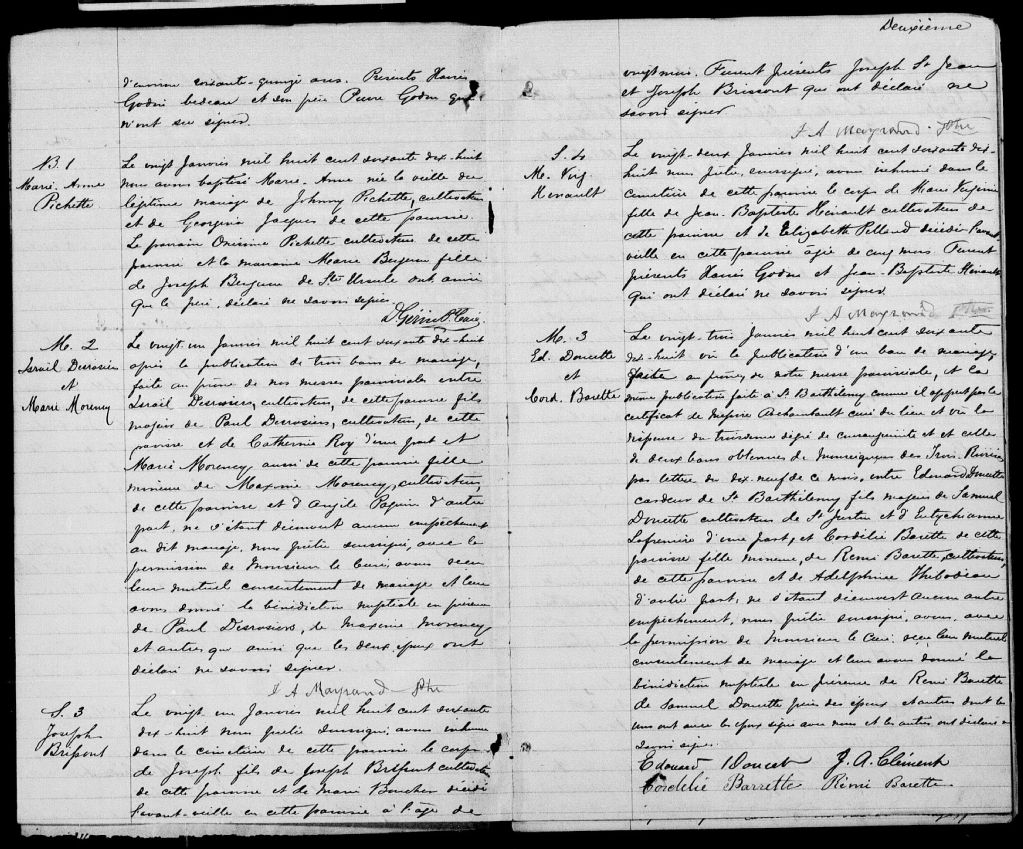 d'environ soixante-quinze ans. Présents Xavier
Godin bedeau et son père Pierre Godin qui
n'ont su signer.
B. 1
Marie. Anne
Pichette
Le vingt Janvier mil huit cent soixante dix-huit
nous avons baptisé Marie. Anne née la veille du
légitime mariage de Johnny Pichette, cultivateur
et de Georgina Jacques de cette paroisse.
Le parrain Onésime Pichette cultivateur de cette
paroisse et la marraine Marie Bergeron fille
de Joseph Bergeron de Ste Ursule ont ainsi
que le père déclaré ne savoir signer.
D. Gérin Ptre Curé
M. 2
Israël Desrosiers
et
Marie Morency
Le vingt-un Janvier mil huit cent soixante dix-huit
après la publication de trois bans de mariage,
faite au prône de nos messes paroissiales entre
Israël Desrosiers, cultivateur, de cette paroisse fils
majeur de Paul Desrosiers, cultivateur, de cette
paroisse et de Catherine Roy d'une part et
Marie Morency, aussi de cette paroisse fille
mineure de Maxime Morency, cultivateur,
de cette paroisse et d'Angèle Paquin d'autre
part, ne s'étant découvert aucun empêchement
au dit mariage, nous prêtre soussigné, avec la
permission de Monsieur le Curé, avons reçu
leur mutuel consentement de mariage et leur
avons donné la bénédiction nuptiale en présence
de Paul Desrosiers, de Maxime Morency
et autres qui ainsi que les deux époux ont
déclaré ne savoir signer.
J A Mayrand - ptre
S. 3
Joseph
Brissont
Le vingt un Janvier mil huit cent soixante
dix-huit nous prêtre soussigné, avons inhumé
dans le cimetière de cette paroisse le corps
de Joseph fils de Joseph Brissont cultivateur
de cette paroisse et de Marie Boucher décédé
l'avant-veille en cette paroisse à l'âge de
Deuxième
vingt mois. Furent présents Joseph St Jean
et Joseph Brissont qui ont déclaré ne
savoir signer
J A Mayrand. ptre
S. 4
M. Virg
Hénault
Le vingt-deux Janvier mil huit cent soixante dix-
huit nous prêtre, soussigné, avons inhumé dans le
cimetière de cette paroisse le corps de Marie Virginie
fille de Jean. Baptiste Hénault cultivateur de
cette paroisse et de Elizabeth Pelland décédée l'avant
veille en cette paroisse âgée de cinq mois Furent
présents Xavier Godin et Jean-Baptiste Hénault
qui ont déclaré ne savoir signer.
J A Mayrand ptre
M. 3
Ed. Doucette
et
Cord. Barette
Le vingt-trois Janvier mil huit cent soixante
dix-huit vu la publication d'un ban de mariage
faite au prône de notre messe paroissiale, et la
même publication faite à St Barthélemy comme il appert par le
certificat de messire Archambault curé du lieu et vu la
dispense du troisième degré de consanguinité et et celle
de deux bans obtenues de Monseigneur des Trois. Rivières
par lettre du dix-neuf de ce mois, entre Edouard Doucette
cardeur de St Barthélemy fils majeur de Samuel
Doucette cultivateur de St Justin et d'Eutychianne
Lafrenière d'une part, et Cordélie Barette de cette
paroisse fille mineure, de Rémi Barette, cultivateur,
de cette paroisse et de Adelphine Thibodeau
d'autre part, ne s'étant découvert aucun autre
empêchement, nous prêtre soussigné, avons, avec
la permission de Monsieur le Curé reçu leur mutuel
consentement de mariage et leur avons donné la
bénédiction nuptiale en présence de Rémi Barette
de Samuel Doucette pères des époux et autres dont les
uns ont avec les époux signé avec nous et les autres ont déclaré ne
savoir signer.
Edouard Doucet J. A. Clément
Cordélié Barrette Rémi Barette